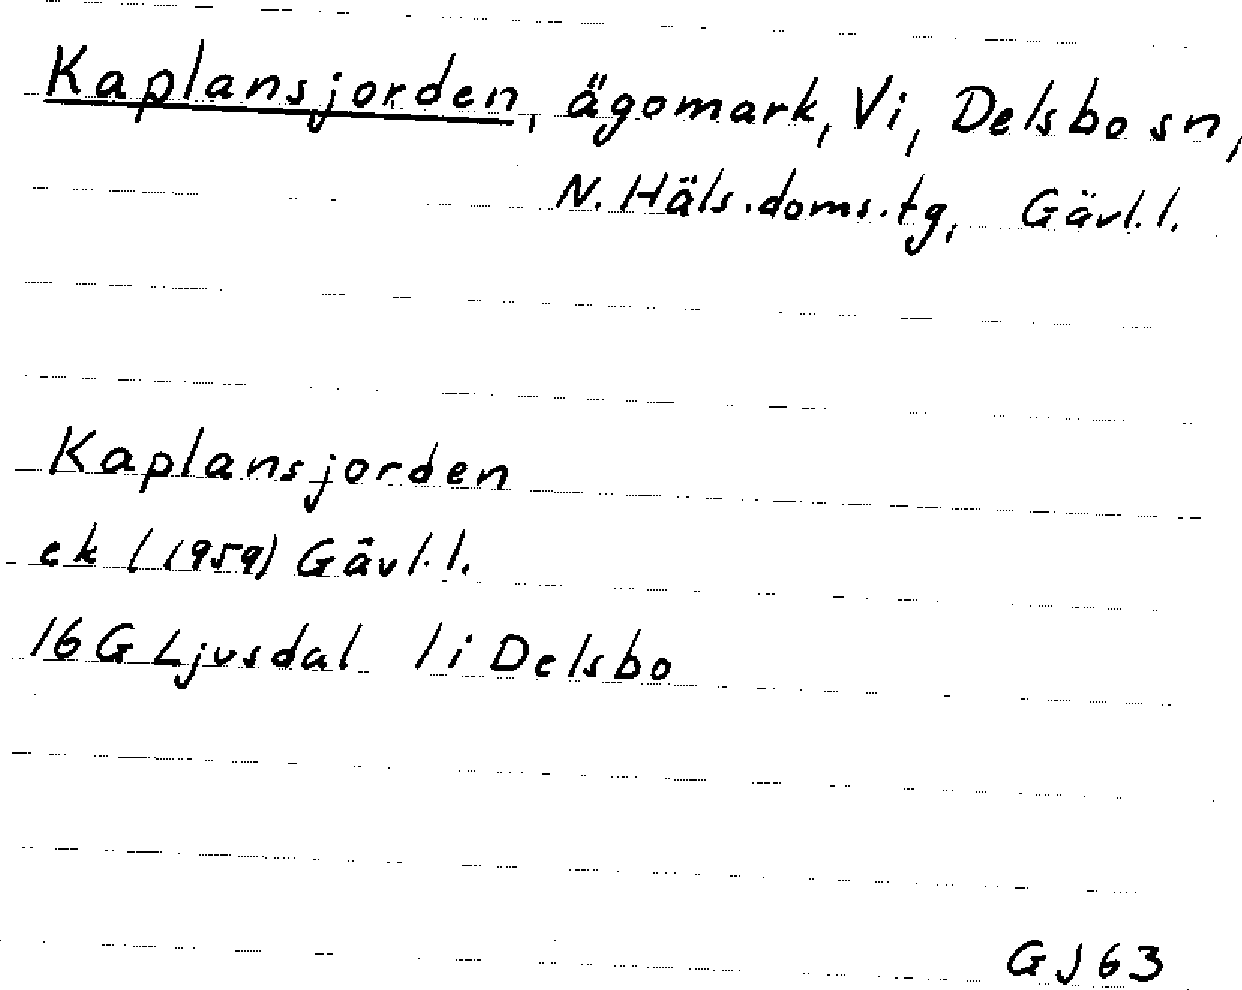 Kaplansjorden, ägomark, Vi, Delsbo sn,
N. Häls.doms.tg, Gävl.l.
Kaplansjorden
ek (1959) Gävl.l.
16G Ljusdal 1i Delsbo
GJ63